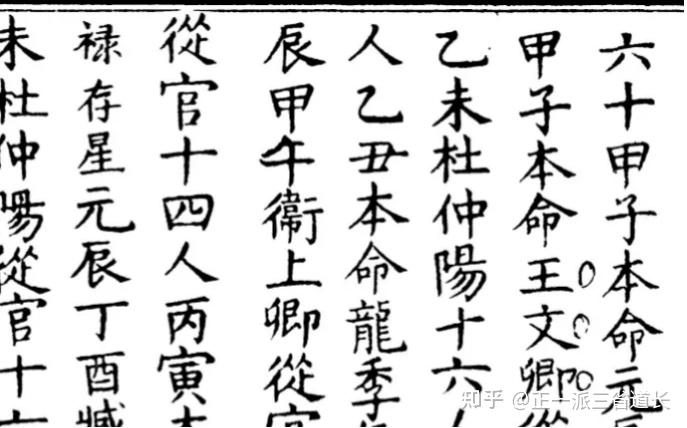 六十甲子本命元
甲子本命王文卿從
乙未杜仲陽十六人
人乙丑本命龍季
辰甲午衞上卿從官
從官十四人丙寅本
禄存星元辰丁酉臧
未杜仲陽從官十六
知乎 @正一派三省道长